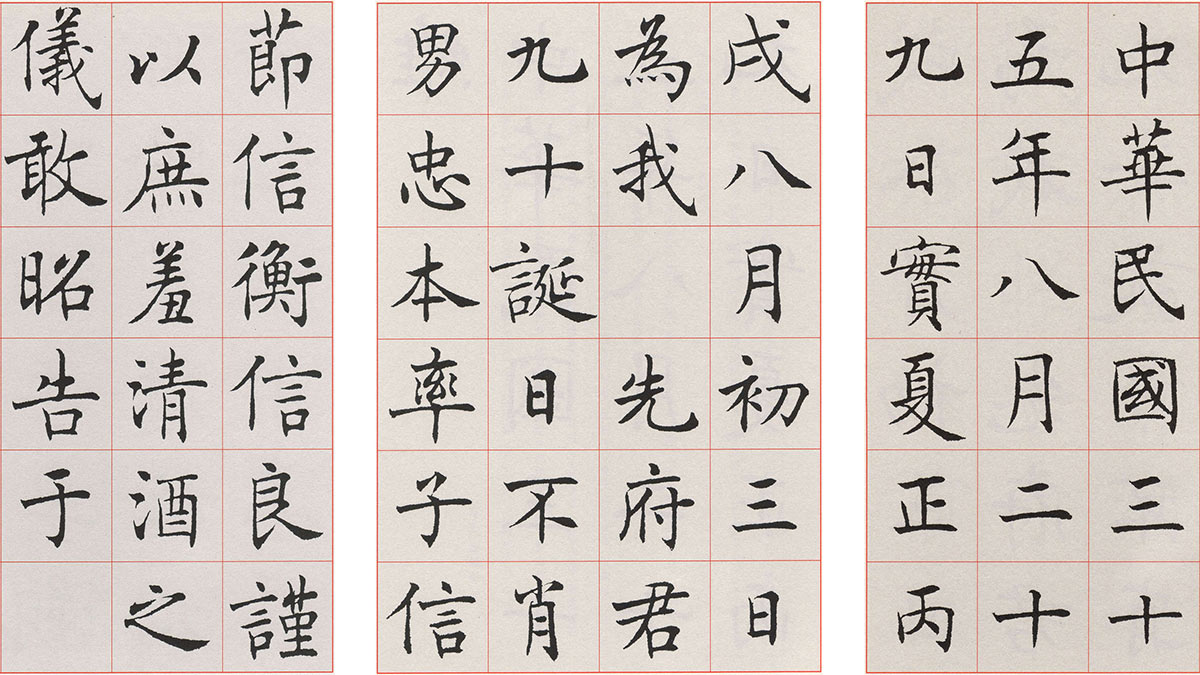 中華民國三十
五年八月二十
九日實夏正丙
戌八月初三日
為我 先府君
九十誕日不肖
男忠本率子信
節信衡信良謹
以庶羞清酒之
儀敢昭告于